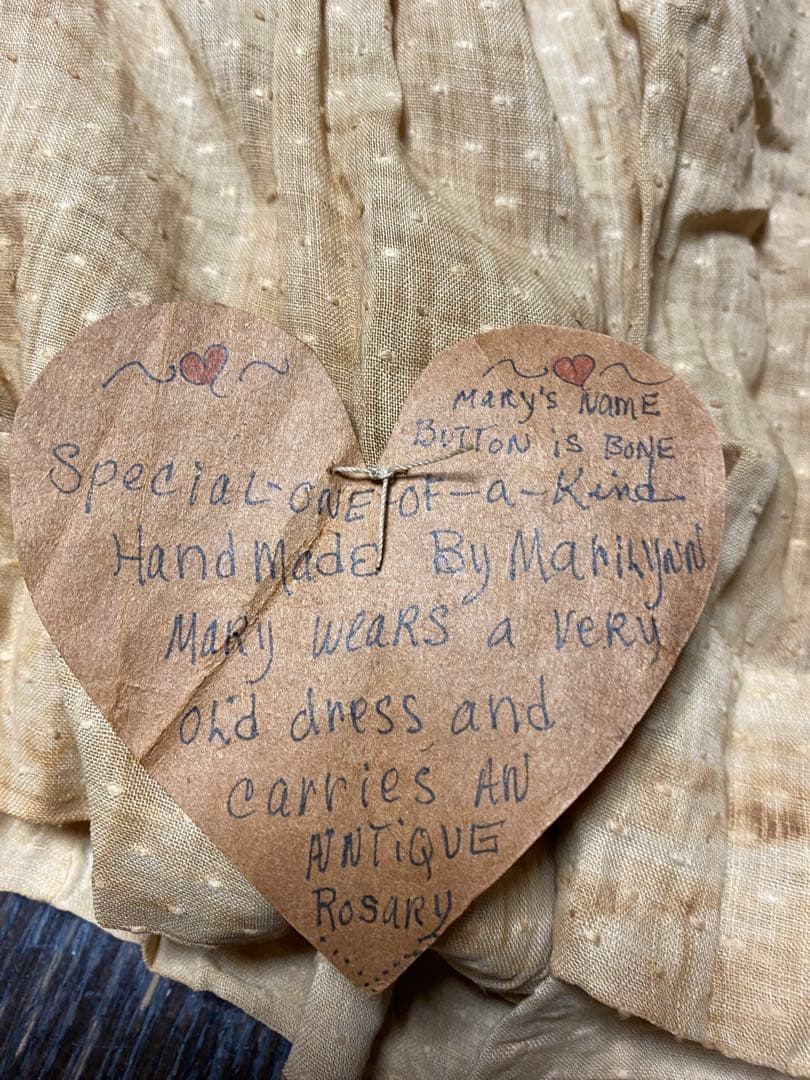 MARY'S NAME
BUTTON is BONE
Special-ONE-OF-a-Kind
HandMade By Marilynn
MARY WEARS a VERY
OLd dress and
carries AN
ANTiQUE
ROSARY